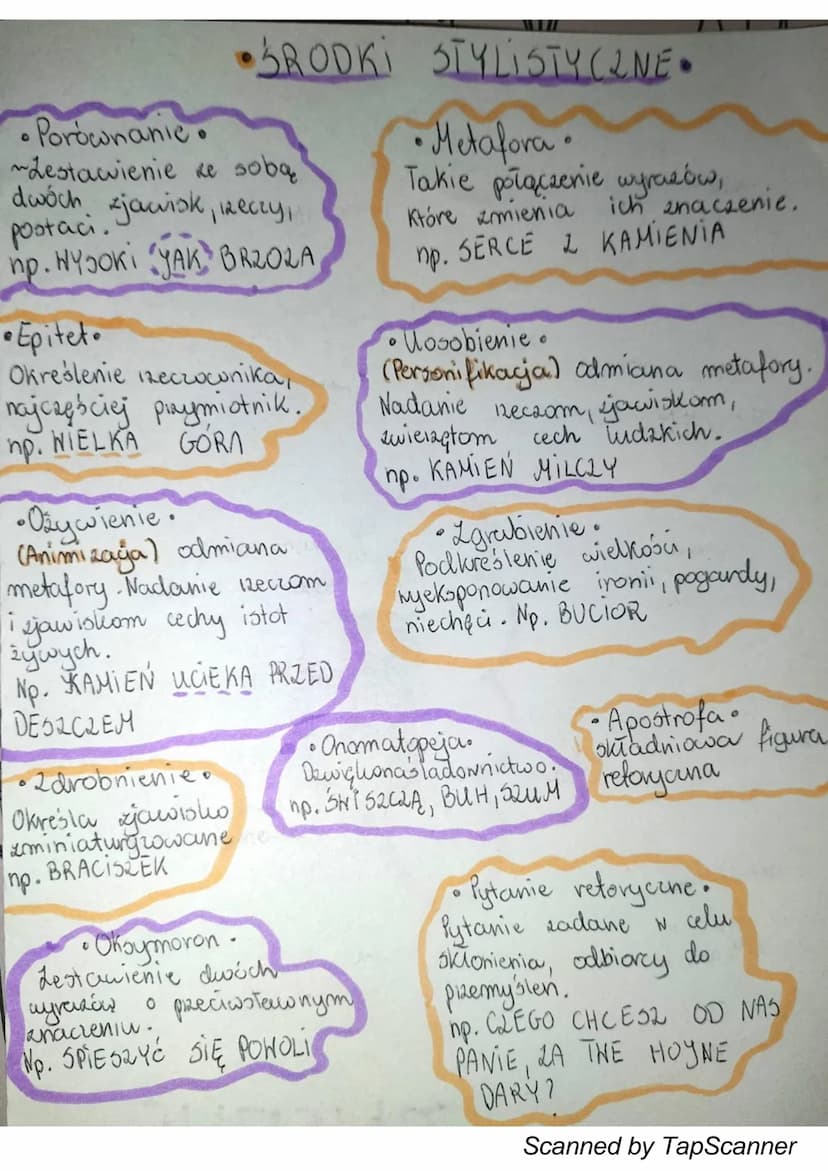 • ŚRODKI STYLISTYCZNE •
• Porównanie •
~Zestawienie ze sobą
dwóch zjawisk, rzeczy,
postaci.
np. WYSOKI JAK BRZOZA
• Metafora •
Takie połączenie wyrazów,
które zmienia ich znaczenie.
np. SERCE Z KAMIENIA
• Epitet •
Określenie rzeczownika,
najczęściej przymiotnik.
np. WIELKA GÓRA
• Uosobienie •
(Personifikacja) odmiana metafory.
Nadanie rzeczom, zjawiskom,
zwierzętom cech ludzkich.
np. KAMIEŃ MILCZY
• Ożywienie •
(Animizacja) odmiana
metafory. Nadanie rzeczom
i zjawiskom cechy istot
żywych.
Np. KAMIEŃ UCIEKA PRZED
DESZCZEM
• Zgrubienie •
Podkreślenie wielkości,
wyeksponowanie ironii, pogardy,
niechęci. Np. BUCIOR
• Apostrofa •
składniowa figura
retoryczna
• Onomatopeja •
Dźwiękonaśladownictwo.
np. ŚWISZCZĄ, BUH, SZUM
• Zdrobnienie •
Określa zjawisko
zminiaturyzowane
np. BRACISZEK
• Pytanie retoryczne •
Pytanie zadane w celu
skłonienia, odbiorcy do
przemyśleń.
np. CZEGO CHCESZ OD NAS
PANIE, ZA TWE HOJNE
DARY?
• Oksymoron •
Zestawienie dwóch
wyrazów o przeciwstawnym
znaczeniu.
Np. SPIESZYĆ SIĘ POWOLI
Scanned by TapScanner